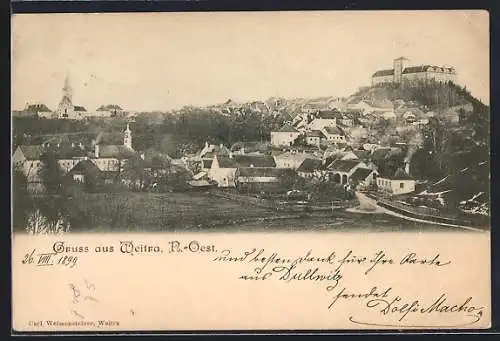 Gruss aus Weitra, N.-Oest.
und besten Dank für Ihre Karte
26. VIII. 1899
aus Dullwitz !
sendet Dolfi Macho
Carl Weissensteiner, Weitra